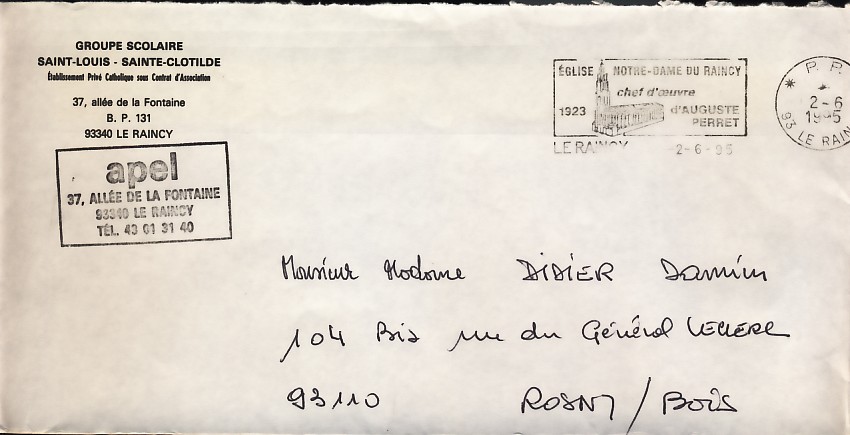 GROUPE SCOLAIRE
SAINT-LOUIS - SAINTE-CLOTILDE
Établissement Privé Catholique sous Contrat d'Association
37, allée de la Fontaine
B. P. 131
93340 LE RAINCY
apel
37, ALLÉE DE LA FONTAINE
93340 LE RAINCY
TÉL. 43 01 31 40
ÉGLISE NOTRE-DAME DU RAINCY
chef d'œuvre
1923 d'AUGUSTE
PERRET
LE RAINCY -2-6-95
P. P.
2-6
1995
93 LE RAIN
Monsieur Madame DIDIER Damien
104 Bis rue du Général LECLERC
93110 ROSNY / BOIS